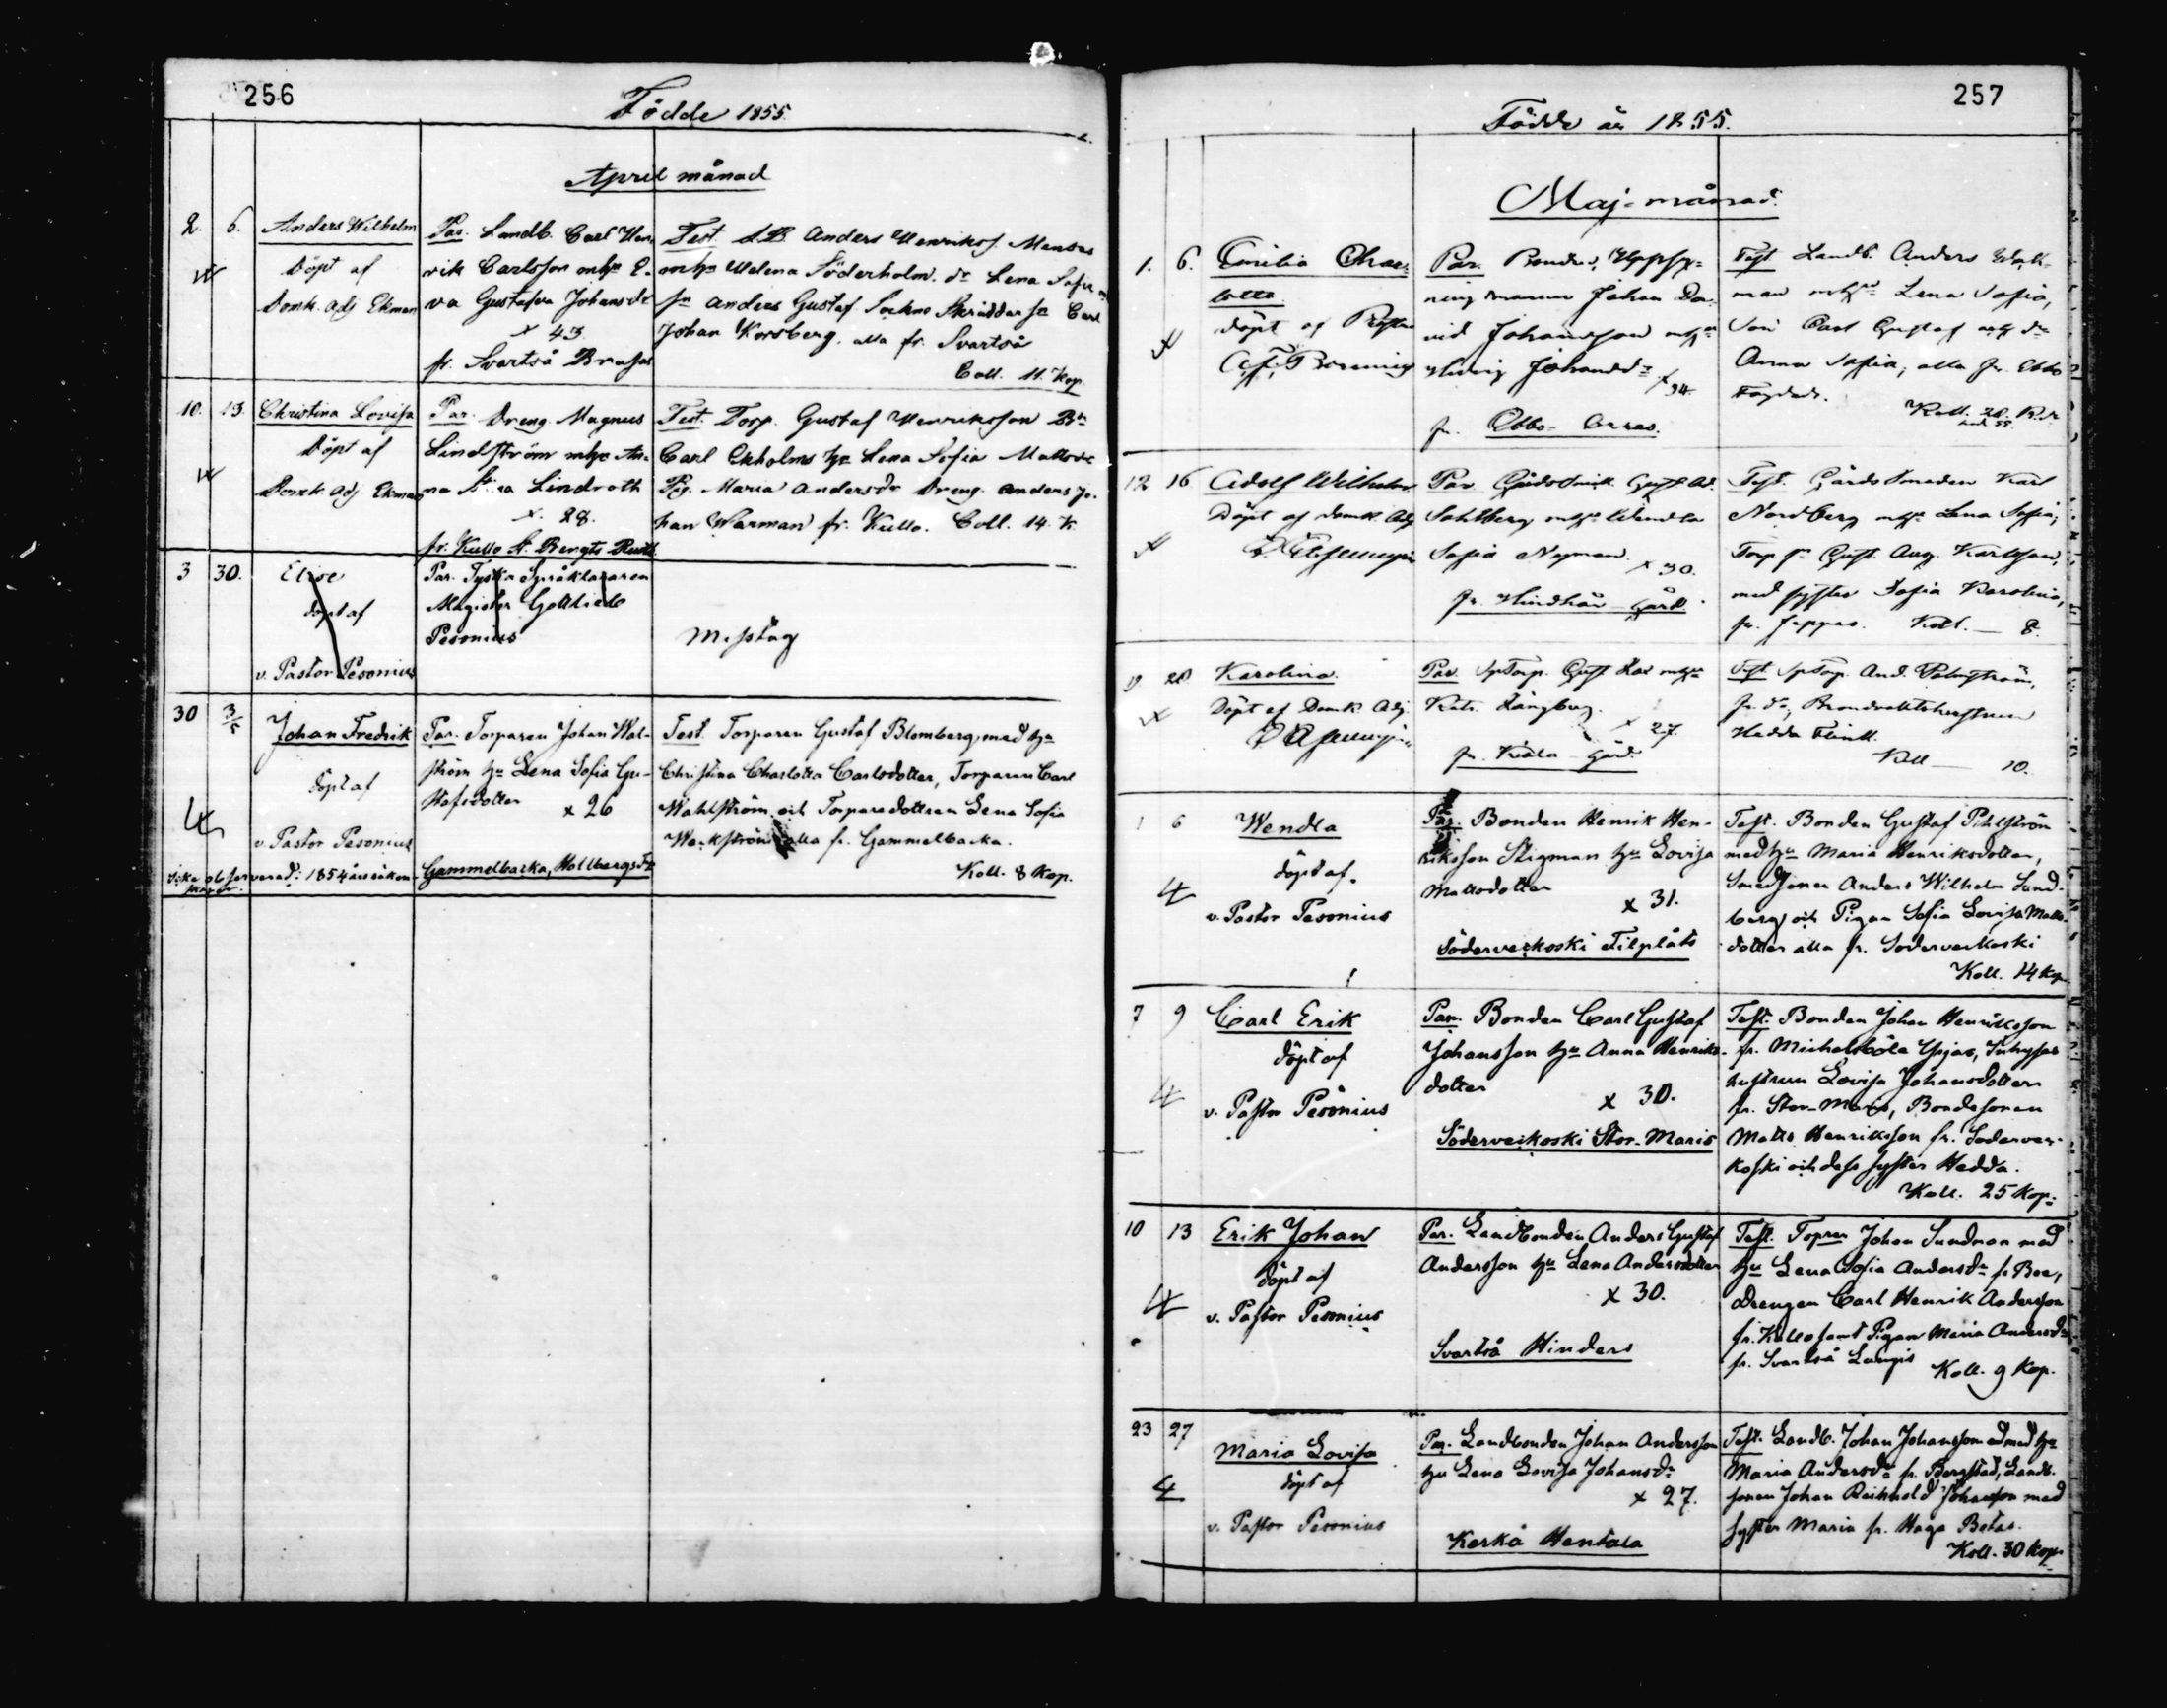 256
Födde 1855.
April månad
2. 6. Anders Wilhelm
Döpt af
Domk. Adj Ekman
Par. Landb. Carl Hen,
rik Carlsson mhu E.
va Gustafva Johansdr
x 43
fr. Svartså Brusas
Test. L.B. Anders Henriksf. Menbes
mhu Helena Söderholm. dr Lena Sofia
sn Anders Gustaf Sockne Skräddar sn Carl
Johan Korsberg. alla fr. Svartså
Coll. 11. Kop.
10. 13. Christina Lovisa
Döpt af
Domk. Adj Ekman
Par. Dreng. Magnus
Lindström mhu An-
na Stina Lindroth
x. 28.
fr. Kullo St. Bengts Rusth.
Test. Torp. Gustaf Henriksson Bn
Carl Ekholms hu Lena Sofia Mattsdr
Pig. Maria Andersdr Dreng. Anders Jo-
han Warman fr. Kullo. Coll. 14. K
3 30. Elise
döpt af
v. Pastor Pesonius
Par. Tyska Språkläraren
Magister Gottlieb
Pesonius
Misstag
30 3/5 Johan Fredrik
döpt af
v. Pastor Pesonius
Par. Torparen Johan Wal-
ström hu Lena Sofia Gu-
stafsdotter x 26
Gammelbacka, Hollbergs Tp
Test. Torparen Gustaf Blomberg, med hu
Christina Charlotta Carlsdotter, Torparen Carl
Wahlström och Torparedottren Lena Sofia
Weckström alla fr. Gammelbacka.
Koll. 8 Kop.
257
Födde år 1855.
Maj-månad.
1. 6. Emilia Char-
lotta
döpt af
Par. Bonden, Uppsy-
ningsmannen Johan Da-
vid Johansson mhu
Hedvig Johansdr
x 34.
fr. Ebbo
Test Landb. Anders
man mhu Lena Sofia,
Son Carl Gustaf och dr
Anna Sofia, alla fr. Ebbo
12 16 Adolf Wilhelm
Döpt af Domk. Adj
Par Gårdssmed. Gust Ad.
Sahlberg mhu Wendla
Sofia Nyman. x 30.
fr. Hindhår Gård.
Test. Gårds Smeden Karl
Nordberg mhu Lena Sofia,
Torp. sn Gust. Aug. Karlsson,
med syster Sofia Karolina,
fr. Jeppas. Koll. — 8.
19 28 Karolina.
Döpt af Domk. Adj.
Par. Gust mhu
Kata Långberg.
x 27.
fr. Kiala Gård.
Test And.
Hedda Flink.
Koll — 10.
1 6 Wendla
döpt af.
v. Pastor Pesonius
Par. Bonden Henrik Hen-
riksson Stigman hu Lovisa
Mattsdotter
x 31.
Söderveckoski Filpläts
Test. Bonden Gustaf Pihlström
med hu Maria Henriksdotter,
Smedsonen Anders Wilhelm Sund-
berg och Pigan Sofia Lovisa Matts-
dotter alla fr. Söderveckoski
Koll. 14 Kop.
7 9 Carl Erik
döpt af
v. Pastor Pesonius
Par. Bonden Carl Gustaf
Johansson hu Anna Henriks-
dotter
x 30.
Söderveckoski Stor-Maris
Test. Bonden Johan Henriksson
fr. Michelsböle Ypjas, Inhyses
hustrun Lovisa Johansdotter
fr. Stor-Maris, Bondesonen
Matts Henriksson fr. Söderveck-
koski och dess syster Hedda.
Koll. 25 Kop.
10 13 Erik Johan
döpt af
v. Pastor Pesonius
Par. Landbonden Anders Gustaf
Andersson hu Lena Andersdotter
x 30.
Svartså Hinders
Test. Topren Johan Sundman med
hu Lena Sofia Andersdr fr Boe,
Drengen Carl Henrik Andersson
fr. Kullo samt Pigan Maria Andersdr
fr. Svartså Koll. 9 Kop.
23 27
Maria Lovisa
döpt af
v. Pastor Pesonius
Par. Landbonden Johan Andersson
hu Lena Lovisa Johansdr
x 27.
Kerkå Hentala
Test. Landb. Johan Johansson med hu
Maria Andersdr fr. Bergstad, Landb.
sonen Johan Reinhold Johansson med
syster Maria fr. Haga Betas.
Koll. 30 Kop.